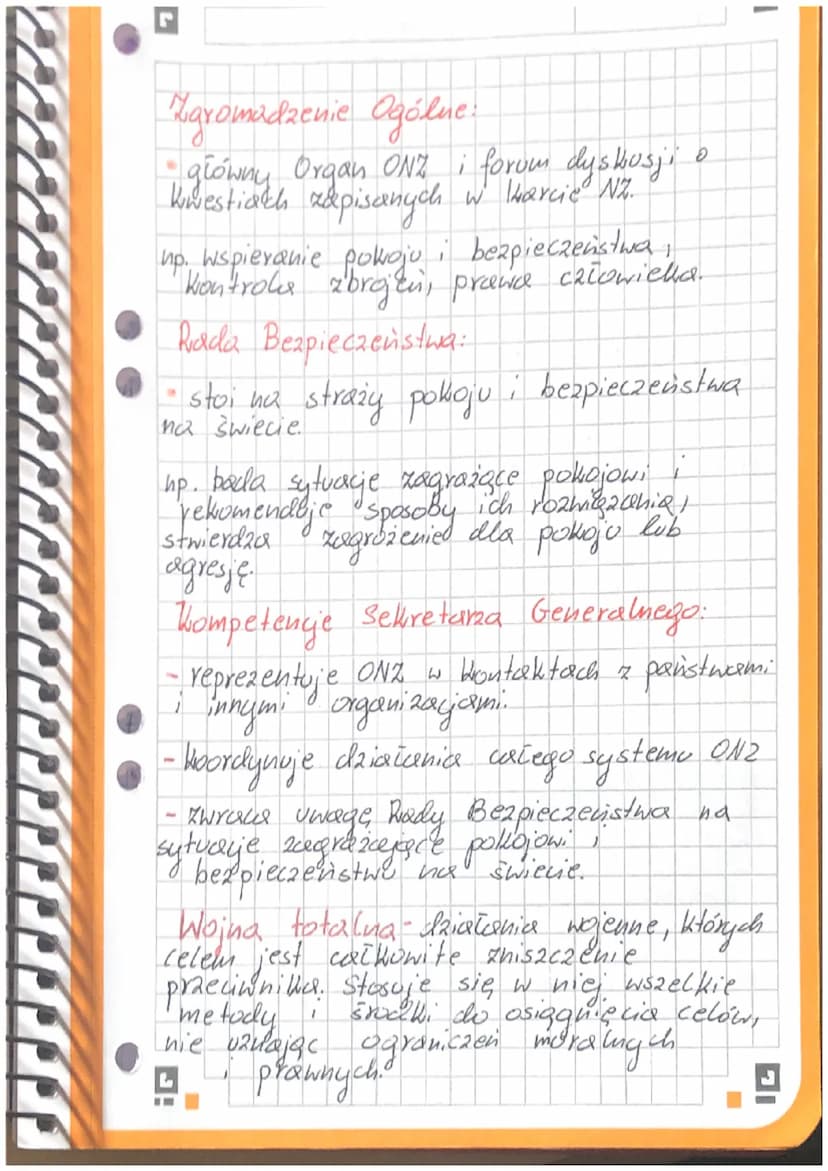 Zgromadzenie Ogólne:
• główny Organ ONZ i forum dyskusji o
kwestiach zapisanych w karcie NZ.
np. wspieranie pokoju i bezpieczeństwa,
kontrola zbrojeń, prawa człowieka.
Rada Bezpieczeństwa:
• stoi na straży pokoju i bezpieczeństwa
na świecie.
np. bada sytuacje zagrażące pokojowi i
rekomenduje sposoby ich rozwiązania,
stwierdza zagrożenie dla pokoju lub
agresję.
Kompetencje Sekretarza Generalnego:
- reprezentuje ONZ w kontaktach z państwami
i innymi organizacjami.
- koordynuje działania całego systemu ONZ
- zwraca uwagę Rady Bezpieczeństwa na
sytuacje zagrażające pokojowi i
bezpieczeństwu na świecie.
Wojna totalna - działania wojenne, których
celem jest całkowite zniszczenie
przeciwnika. Stosuje się w niej wszelkie
metody i środki do osiągnięcia celów,
nie uznając ograniczeń moralnych
i prawnych.